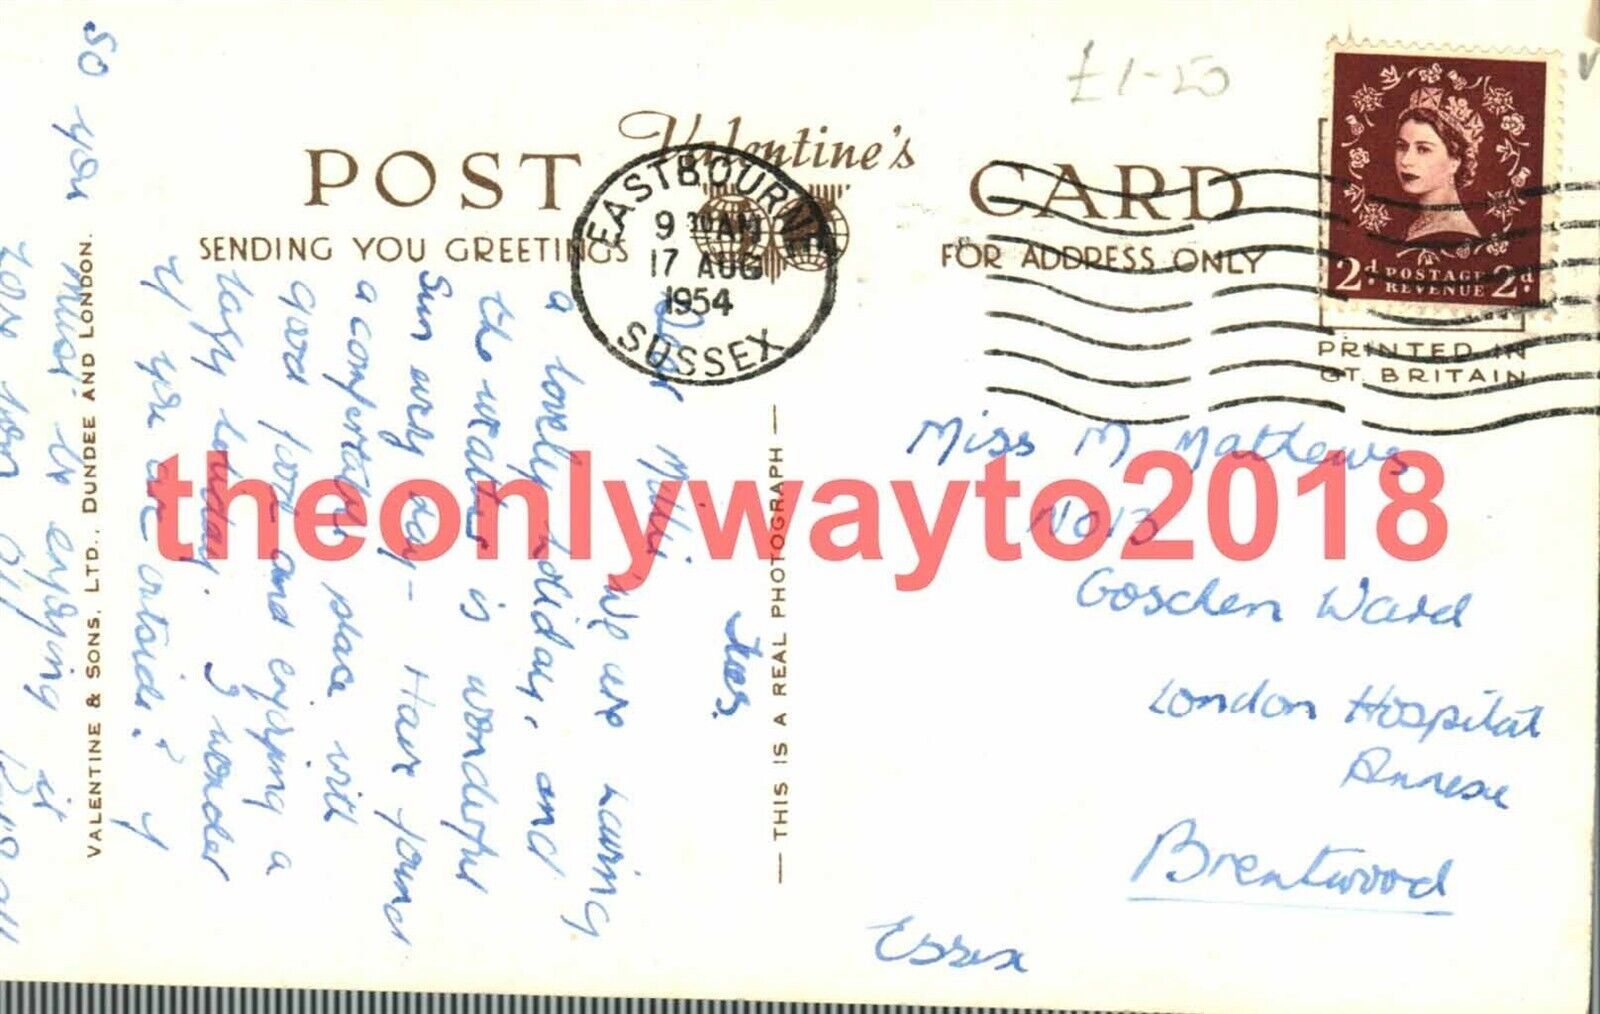 £1-50
Valentine's
POST CARD
SENDING YOU GREETINGS
FOR ADDRESS ONLY
EASTBOURNE
9 30 AM
17 AUG
1954
SUSSEX
2d POSTAGE REVENUE 2d
PRINTED IN
GT. BRITAIN
Tues.
Dear Millie, We are having
a lovely holiday, and
the weather is wonderful
Sun every day - Have found
a comfortable place with
good food and enjoying a
lazy holiday. I wonder
if you are outside? if
so you must be enjoying it
Love from
VALENTINE & SONS, LTD., DUNDEE AND LONDON.
— THIS IS A REAL PHOTOGRAPH —
Miss M Mathews
No.13
Goschen Ward
London Hospital
Annexe
Brentwood
Essex
theonlywayto2018